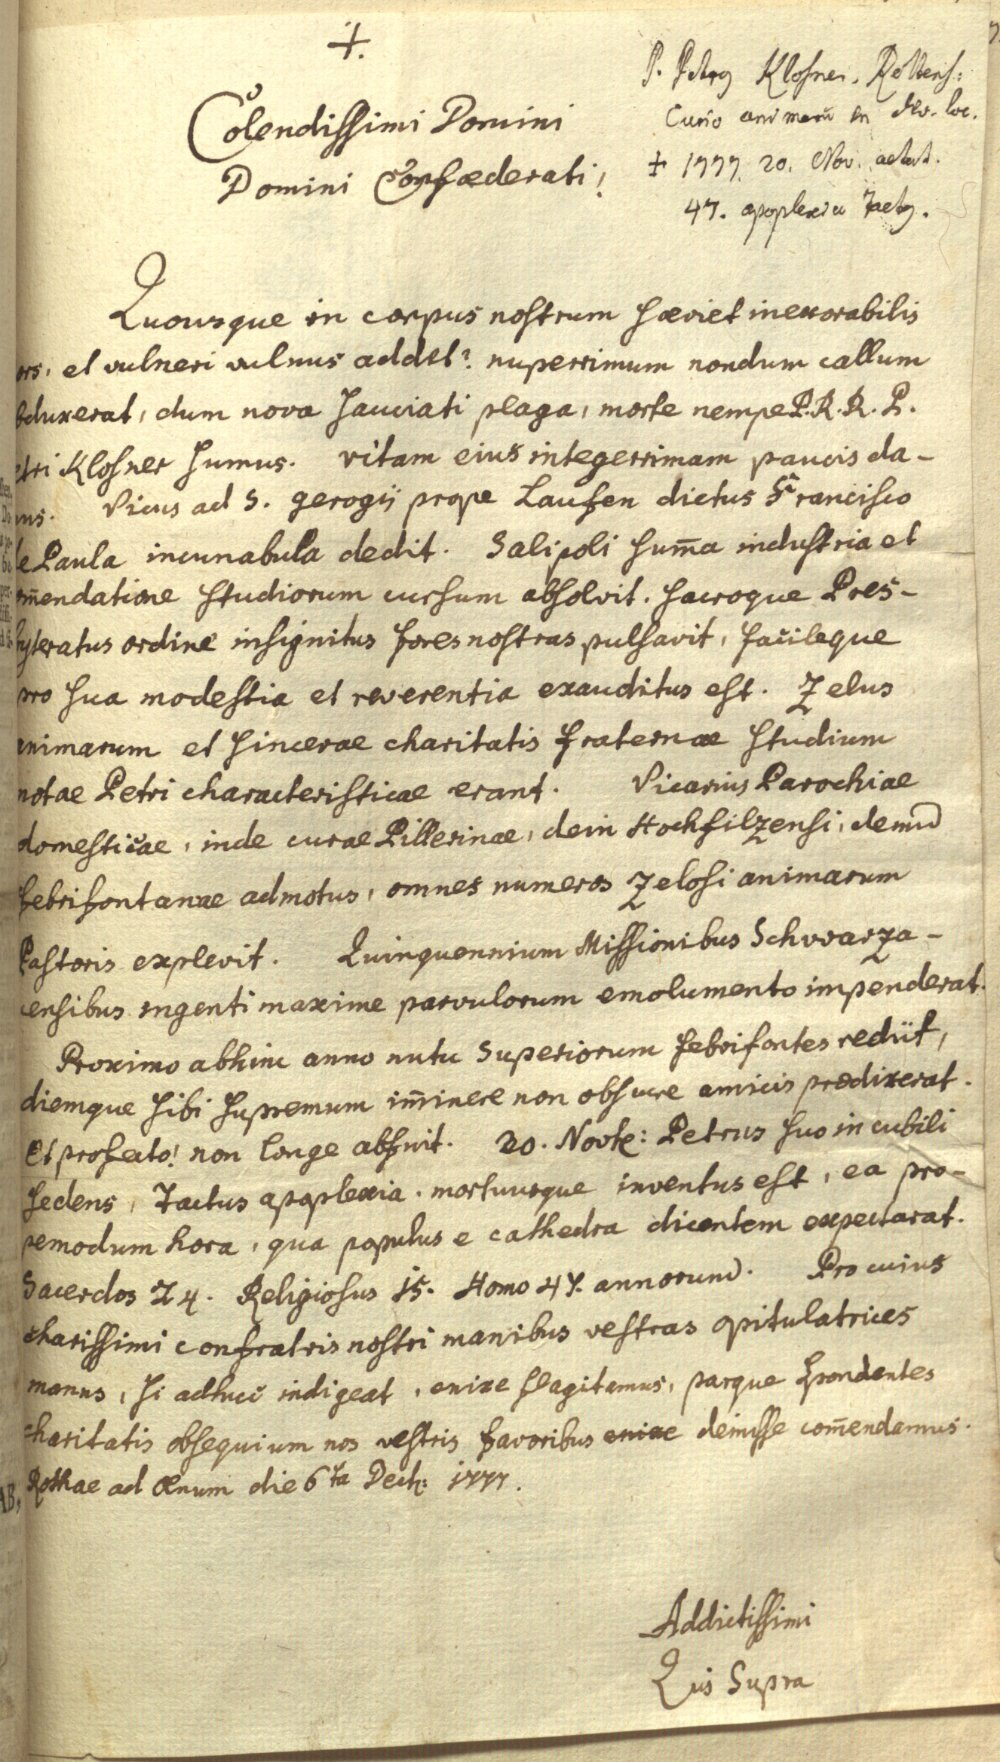 +.
P. Petrg Klosner. Rottens:
Curio animarū in div. loc.
+ 1777. 20. Nov. aetat.
47. apoplexia tactg.
Colendissimi Domini
Domini Confæderati!
Quousque in corpus nostrum sæviet inexorabilis
ors, et vulneri vulnus addet? nuperrimum nondum callum
bduxerat, dum nova sauciati plaga, morte nempe P. R. R. P.
etri Klosner sumus. vitam eius integerrimam paucis da-
mus. Vicus ad S. gerogij prope Laufen dictus Francisco
de Paula incunabula dedit. Salipoli sum̄a industria et
om̄endatione studiorum cursum absolvit. sacroque Pres-
byteratus ordine insignitus fores nostras pulsavit, facileque
pro sua modestia et reverentia exauditus est. Zelus
animarum et sincerae charitatis fraternae studium
notae Petri characteristicae erant. Vicarius Parochiae
domesticae, inde curae Pillerinae, dein Hochfilzensi, demū
febrifontanae admotus, omnes numeros zelosi animarum
Pastoris explevit. Quinquennium Missionibus Schvvarza-
censibus ingenti maxime parvulorum emolumento impenderat.
Proximo abhinc anno nutu Superiorum febrifontes rediit,
diemque sibi supremum im̄inere non obscure amicis prædixerat.
Et profecto! non longe abfuit. 20. Novbr: Petrus suo in cubili
sedens, tactus apoplexia. mortuusque inventus est, ea pro-
pemodum hora, qua populus e cathedra dicentem expectarat.
Sacerdos 24. Religiosus 15. Homo 47. annorum. Pro cuius
charissimi confratris nostri manibus vestras opitulatrices
manus, si adhuc indigeat, enixe flagitamus, parque spondentes
charitatis obsequium nos vestris favoribus enixe demisse com̄endamus.
Rothae ad Œnum die 6ta Decb: 1777.
Addictissimi
Qui Supra